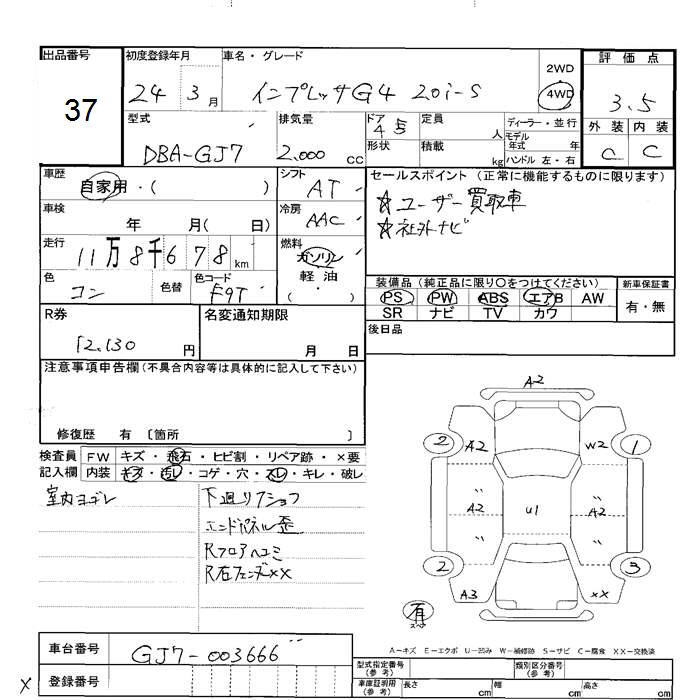 出品番号 37
初度登録年月 24 3月
車名・グレード インプレッサG4 20i-S
2WD
4WD
評価点 3.5
外装 内装
C C
型式 DBA-GJ7
排気量 2.000cc
ドア 4
形状
定員 人
積載 kg
ディーラー・並行
モデル年式 年
ハンドル 左・右
車歴 自家用・( )
シフト AT
セールスポイント(正常に機能するものに限ります)
☆ユーザー買取車
☆社外ナビ
車検 年 月( 日)
冷房 AAC
走行 11万8千678km
燃料 ガソリン
軽油
( ・ )
色 コン
色替
色コード
装備品(純正品に限り○をつけてください)
PS PW ABS エアB AW
SR ナビ TV カワ
新車保証書
有・無
R券 12.130円
名変通知期限 月 日
後日品
注意事項申告欄(不具合内容等は具体的に記入して下さい)
修復歴 有 〔箇所 〕
検査員記入欄
FW キズ・飛石・ヒビ割・リペア跡・×要
内装 キズ・汚レ・コゲ・穴・スレ・キレ・破レ
室内ヨゴレ
下廻リ
エンドパネル歪
Rフロアヘコミ
R右フェンダ××
A-2
2 A2 W2 1
〃 〃
A2 U1 A2
〃 〃
2 A3 ×× 3
有
A-キズ E-エクボ U-凹み W-補修跡 S-サビ C-腐食 XX-交換済
車台番号 GJ7-003666
登録番号
×
型式指定番号(参考)
類別区分番号(参考)
車庫証明用(参考) 長さ cm 幅 cm 高さ cm